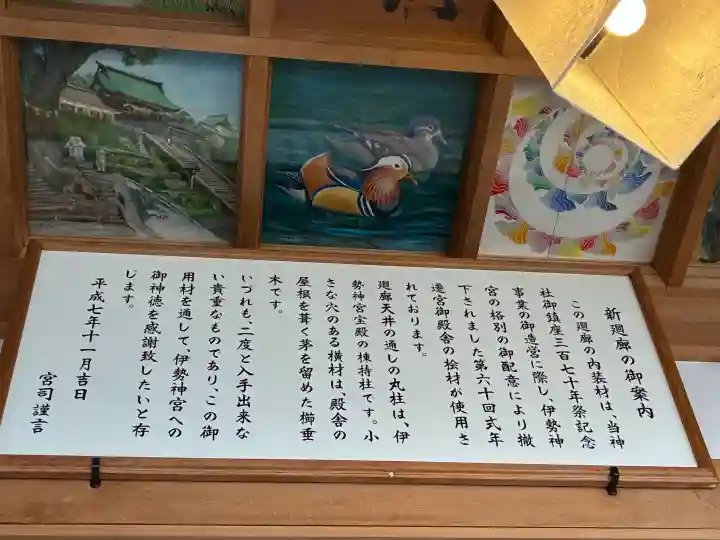 新廻廊の御案内
この廻廊の内装材は、当神
社御鎮座三百七十年祭記念
事業の御造営に際し、伊勢神
宮の格別の御配意により撤
下されました第六十回式年
遷宮御殿舎の桧材が使用さ
れております。
廻廊天井の通しの丸柱は、伊
勢神宮宝殿の棟持柱です。小
さな穴のある横材は、殿舎の
屋根を葺く茅を留めた櫛垂
木です。
いづれも、二度と入手出来な
い貴重なものであり、この御
用材を通して、伊勢神宮への
御神徳を感謝致したいと存
じます。
平成七年十一月吉日
宮司謹言